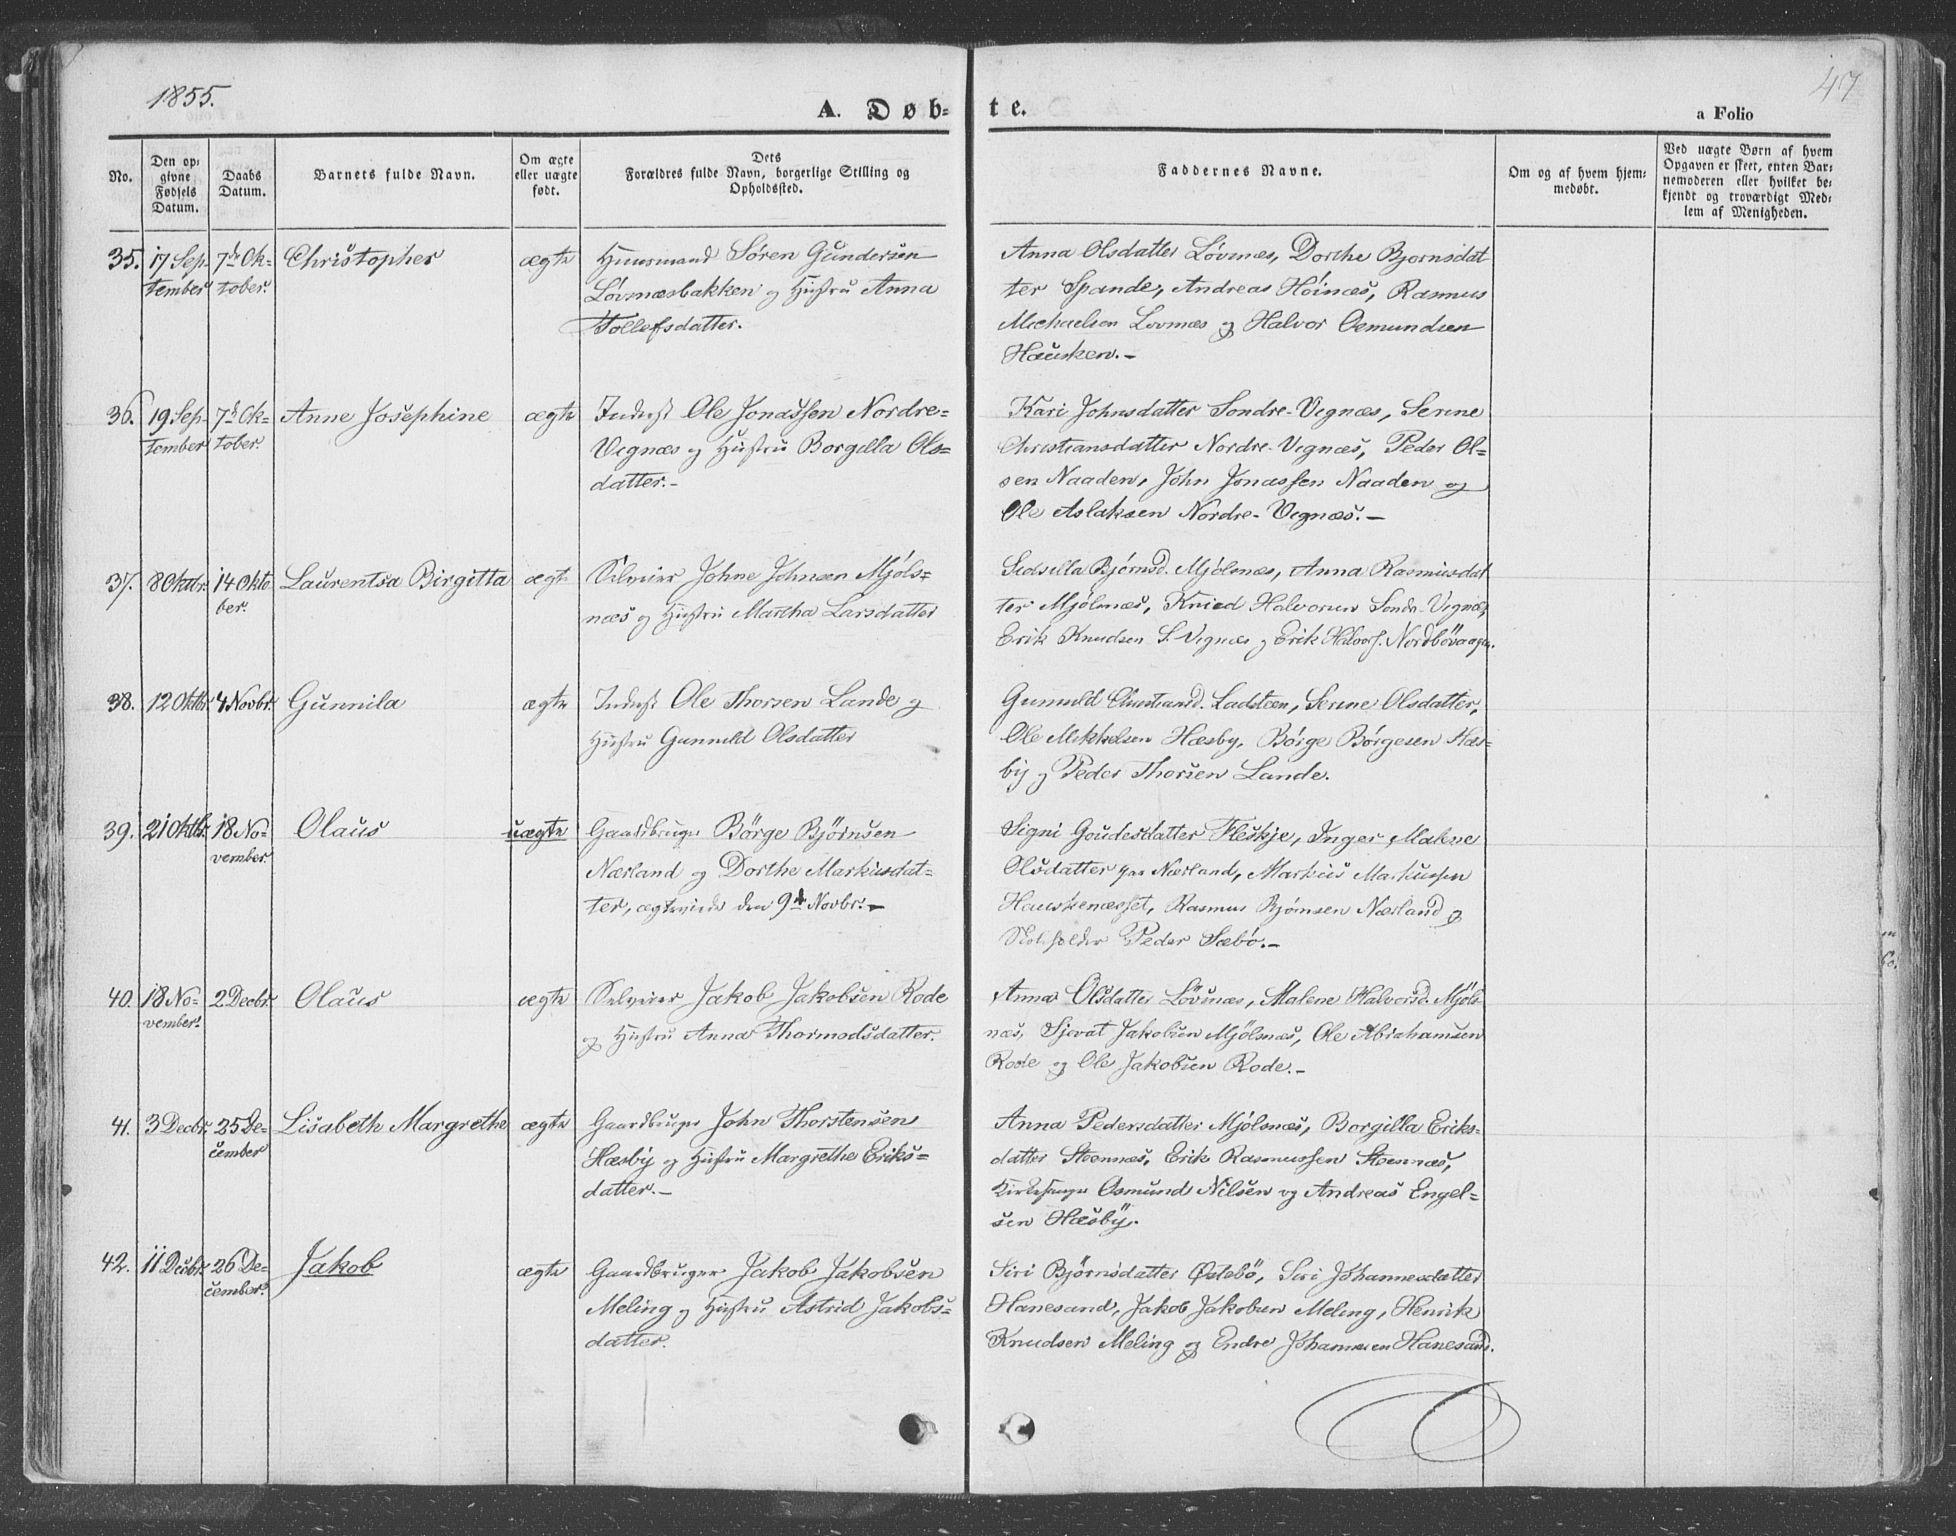 1855.
47
A. Døb-
te.
a Folio
No.
Den op-
givne
Fødsels
Datum.
Daabs
Datum.
Barnets fulde Navn.
Om ægte
eller uægte
født.
Dets
Forældres fulde Navn, borgerlige Stilling og
Opholdssted.
Faddernes Navne.
Om og af hvem hjem-
medøbt.
Ved uægte Børn af hvem
Opgaven er skeet, enten Bar-
nemoderen eller hvilket be-
kjendt og troværdigt Med-
lem af Menigheden.
35.
17 Sep-
tember
7de Ok-
tober.
Christopher
ægte
Huusmand Søren Gundersen
Løvnæsbakken og Hustru Anna
Tollefsdatter.
Anna Olsdatter Løvnæs, Dorthe Bjornsdat
ter Spande, Andreas Höinæs, Rasmus
Michaelsen Lovnæs og Halvor Osmundsen
Hausken.-
36.
19 Sep-
tember
7de Ok-
tober.
Anne Josephine
ægte
Inderst Ole Jonassen Nordre-
Vignæs og Hustru Borgilla Ols-
datter.-
Kari Johnsdatter Søndre-Vignæs, Serine
Christiansdatter Nordre-Vignæs, Peder Ol-
sen Naaden, John Jonassen Naaden og
Ole Aslaksen Nordre-Vignæs.-
37.
8 Oktbr.
14 Okto
ber.
Laurentsa Birgitta
ægte
Selveier Johne Johnsen Mjöls-
næs og Hustru Martha Larsdatter
Sidsilla Bjørnsd. Mjölsnæs, Anna Rasmusdat
ter Mjölsnæs, Knud Halvorsen Søndr. Vignæs,
Erik Knudsen S. Vignæs og Erik Halvors. Nordbövaagen.
38.
12 Oktbr.
4 Novbr.
Gunnila
ægte
Inderst Ole Thorsen Lande og
Hustru Gunnild Olsdatter
Gunnild Christiansd. Ladsteen, Serine Olsdatter,
Ole Mikkelsen Hæsby, Börge Börgesen Hæs-
by og Peder Thorsen Lande.
39.
21 Oktbr.
18 No-
vember
Olaus
uægte
Gaardbruger Börge Björnsen
Næsland og Dorthe Markusdat-
ter, ægteviede den 9de Novbr.-
Signi Goudesdatter Fleskje, Inger Malene
Olsdatter paa Næsland, Markus Markussen
Hauskenæsset, Rasmus Bjørnsen Næsland og
Skoleholder Peder Sæbö.-
40.
18 No-
vember
2 Decbr.
Olaus
ægte
Selveier Jakob Jakobsen Rode
og Hustru Anna Thormodsdatter.
Anna Olsdatter Lövnæs, Malene Halvorsd. Mjöls
næs, Sjevat Jakobsen Mjölsnæs, Ole Abrahamsen
Rode og Ole Jakobsen Rode.-
41.
3 Decbr.
25 De-
cember
Lisabeth Margrethe
ægte
Gaardbruger John Thorstensen
Hæsby og Hustru Margrethe Eriks-
datter.-
Anna Pedersdatter Mjölsnæs, Borgilla Eriks-
datter Steennæs, Erik Rasmussen Steennæs,
Kirkesanger Osmund Nilsen og Andreas Engel-
sen Hæsby.
42.
11 Decbr.
26 De-
cember.
Jakob
ægte
Gaardbruger Jakob Jakobsen
Meling og Hustru Astrid Jakobs-
datter.
Siri Bjørnsdatter Østebö, Siri Johannesdatter
Hanesand, Jakob Jakobsen Meling, Henrik
Knudsen Meling og Endre Johannesen Hanesand.